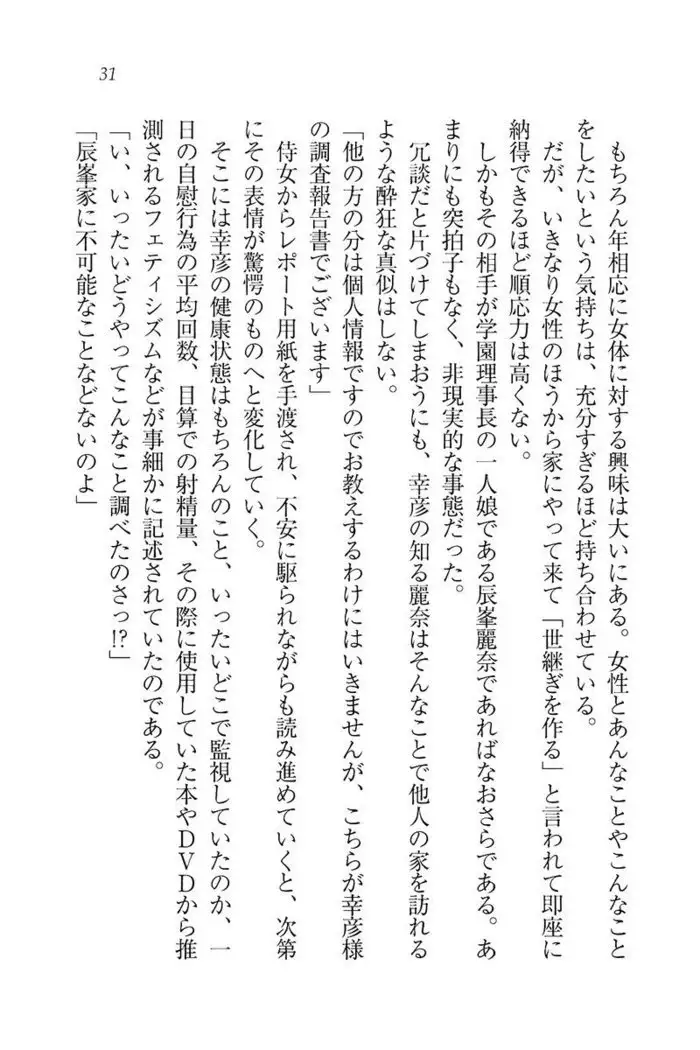 31
もちろん年相応に女体に対する興味は大いにある。女性とあんなことやこんなこと
をしたいという気持ちは、充分すぎるほど持ち合わせている。
だが、いきなり女性のほうから家にやって来て「世継ぎを作る」と言われて即座に
納得できるほど順応力は高くない。
しかもその相手が学園理事長の一人娘である辰峯麗奈であればなおさらである。あ
まりにも突拍子もなく、非現実的な事態だった。
冗談だと片づけてしまおうにも、幸彦の知る麗奈はそんなことで他人の家を訪れる
ような酔狂な真似はしない。
「他の方の分は個人情報ですのでお教えするわけにはいきませんが、こちらが幸彦様
の調査報告書でございます」
侍女からレポート用紙を手渡され、不安に駆られながらも読み進めていくと、次第
にその表情が驚愕のものへと変化していく。
そこには幸彦の健康状態はもちろんのこと、いったいどこで監視していたのか、一
日の自慰行為の平均回数、目算での射精量、その際に使用していた本やDVDから推
測されるフェティシズムなどが事細かに記述されていたのである。
「い、いったいどうやってこんなこと調べたのさっ!?」
「辰峯家に不可能なことなどないのよ」